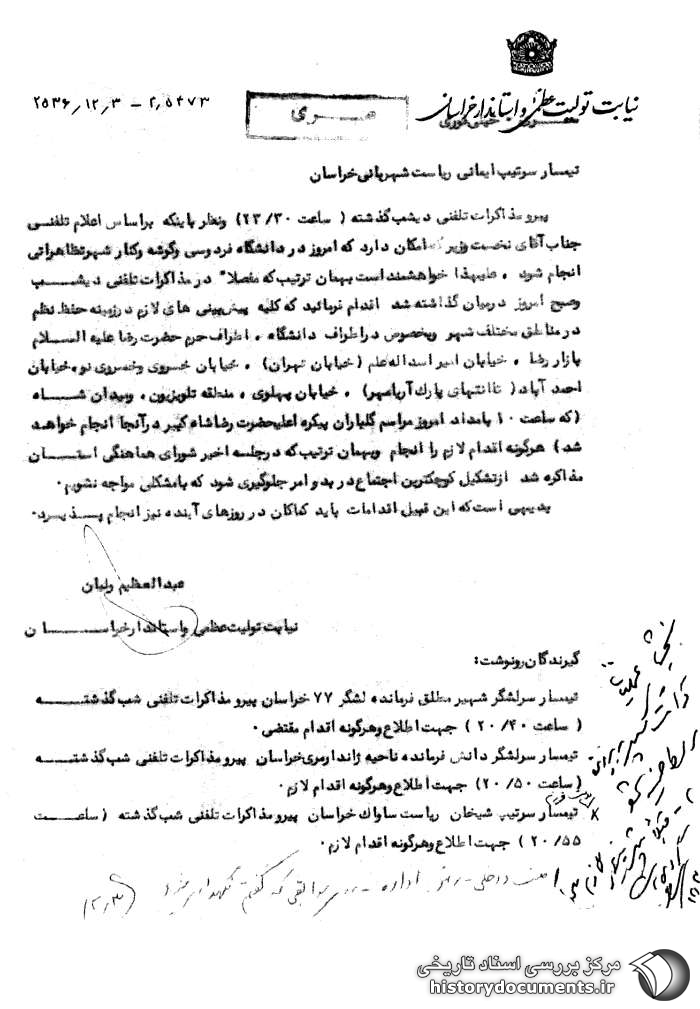 نیابت تولیت عظمی و استاندار خراسان
خیلی فوری
سری
۲۰۵۴۷۳ - ۲۵۳۶/۱۲/۳
تیمسار سرتیپ ایمانی ریاست شهربانی خراسان
پیرو مذاکرات تلفنی دیشب گذشته ( ساعت ۲۳/۳۰) ونظر باینکه براساس اعلام تلفنی
جناب آقای نخست وزیر امکان دارد که امروز در دانشگاه فردوسی وگوشه وکنار شهر تظاهراتی
انجام شود . علیهذا خواهشمند است بهمان ترتیب که مفصلا" در مذاکرات تلفنی دیشب
وصبح امروز درمیان گذاشته شد اقدام فرمائید که کلیه پیش بینی های لازم در زمینه حفظ نظم
در مناطق مختلف شهر وبخصوص در اطراف دانشگاه . اطراف حرم حضرت رضا علیه السلام
بازار رضا . خیابان امیر اسداله علم (خیابان تهران) . خیابان خسروی وخسروی نو . خیابان
احمد آباد( تا انتهای پارک آریامهر) . خیابان پهلوی . منطقه تلویزیون . ومیدان شاه
(که ساعت ۱۰ بامداد امروز مراسم گلباران پیکره اعلیحضرت رضاشاه کبیر در آنجا انجام خواهد
شد) هرگونه اقدام لازم را انجام وبهمان ترتیب که در جلسه اخیر شورای هماهنگی استان
مذاکره شد از تشکیل کوچکترین اجتماع در بدو امر جلوگیری شود که بامشکلی مواجه نشویم .
بدیهی است که این قبیل اقدامات باید کماکان در روزهای آینده نیز انجام پذیرد .
عبدالعظیم ولیان
نیابت تولیت عظمی واستاندار خراسان
گیرندگان رونوشت:
تیمسار سرلشگر شهیر مطلق فرمانده لشگر ۷۷ خراسان پیرو مذاکرات تلفنی شب گذشته
( ساعت ۲۰/۴۰ ) جهت اطلاع وهرگونه اقدام مقتضی .
تیمسار سرلشگر دانش فرمانده ناحیه ژاندارمری خراسان پیرو مذاکرات تلفنی شب گذشته
(ساعت ۲۰/۵۰) جهت اطلاع وهرگونه اقدام لازم .
تیمسار سرتیپ شیخان ریاست ساواک خراسان پیرو مذاکرات تلفنی شب گذشته (ساعت
۲۰/۵۵ ) جهت اطلاع وهرگونه اقدام لازم .
مرکز بررسی اسناد تاریخی
historydocuments.ir